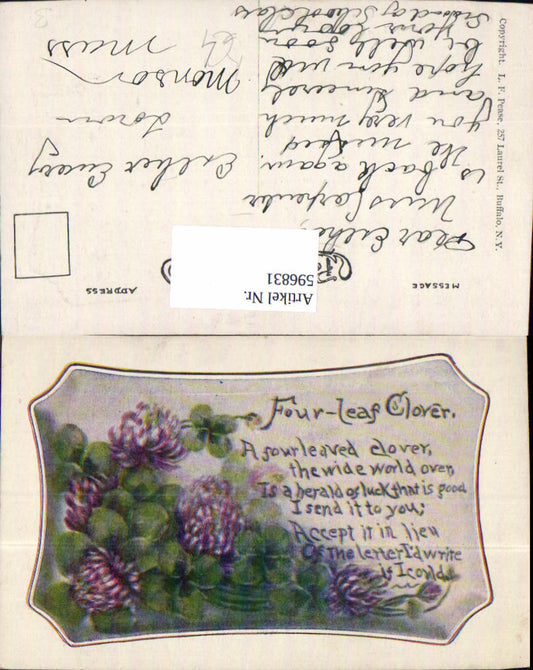 Copyright. L. F. Pease, 257 Laurel St., Buffalo, N. Y.
MESSAGE
ADDRESS
Artikel Nr.
596831
Dear Esther,
Miss Carpenter
is back again.
He missed
you very much
and sincerely
hope you will
be well soon
Your loving
Sunday School Class
Esther Emery
Town
Monson
Mass
Four-Leaf Clover.
A four leaved clover,
the wide world over,
Is a herald of luck that is good
I send it to you;
Accept it in lieu
Of the letter I'd write
if I could.